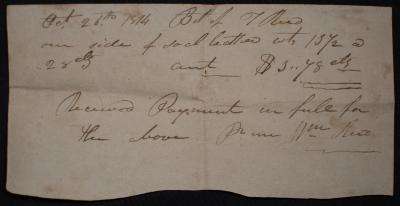 Oct. 26th 1814 Bot of T Reed
one side of soal leather wt 13 1/2 a
28 cts amt $3..78 cts
Received Payment in full for
the above Pr me Wm Reed